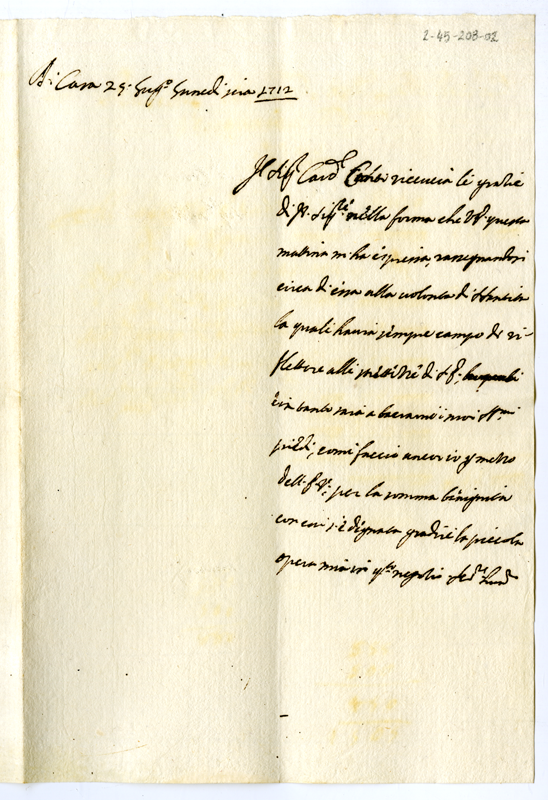 2-45-208-02
Di Casa 25. Lug.º Lunedì sera 1712
Il Sig.r Card.l riceverà le gratie
di N. Sig.re nella forma che V. questa
mattina m'ha espressa, rassegnandosi
circa di essa alla volontà di S. Santità
la quale havrà sempre campo di ri-
flettere alli di S. E.,
e in tanto sarà a baciarne i suoi SS.mi
piedi, come faccio ancor io p mezzo
dell' per la somma benignità
con cui s'è degnata gradire la piccola
opera mia in q.to negotio